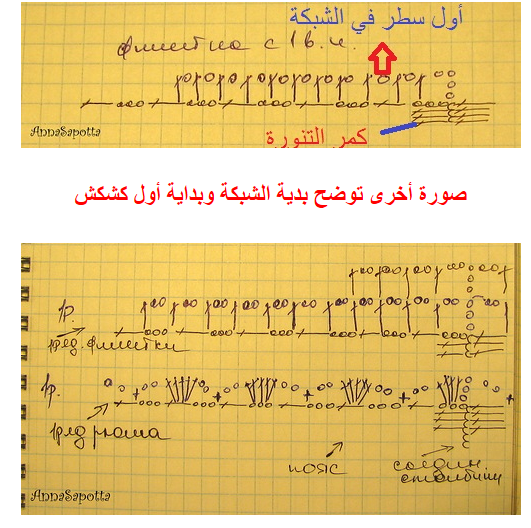 أول سطر في الشبكة
филетка с 1 в. ч.
كمر التنورة
AnnaSapotta
صورة أخرى توضح بدية الشبكة وبداية أول كشكش
р.
ряд. филетки
р.
ряд рюша
пояс
соедин.
столбики
AnnaSapotta